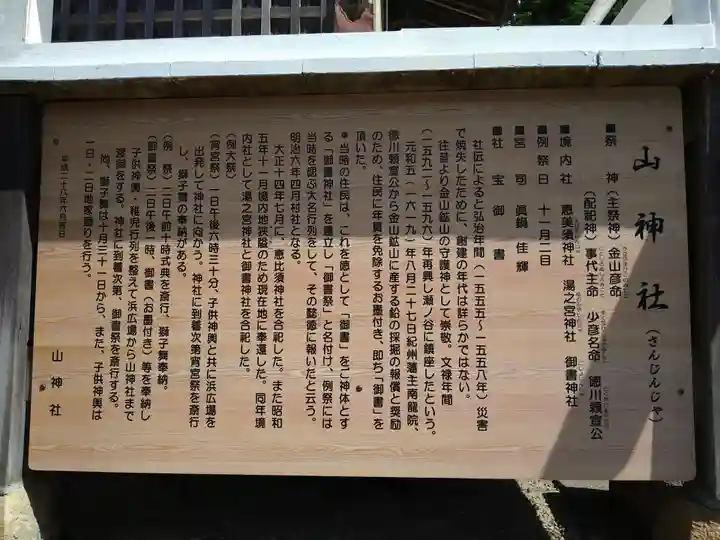 山神社（さんじんじゃ）
■祭　神　（主祭神）金山彦命
（配祀神）事代主命　少彦名命　徳川頼宣公
■境内社　恵美須神社　湯之宮神社　御書神社
■例祭日　十一月二日
■宮　司　眞鍋　佳輝
■社　宝　御　書
社記によると弘治年間（一五五五～一五五八年）災害
で焼失したために、創建の年代は詳らかではない。
往昔より金山鉱山の守護神として崇敬。文禄年間
（一五九二～一五九六）年再興し瀬ノ谷に鎮座したという。
元和五（一六一九）年八月二十七日紀州藩主南龍院、
徳川頼宣公から金山鉱山に産する鉛の採掘の報償と奨励
のため、住民に年貢を免除するお墨付き、即ち「御書」を
頂いた。
＊当時の住民は、これを徳として「御書」をご神体とす
る「御書神社」を建立し「御書祭」と名付け、例祭には
当時を認ぶ大名行列をして、その懿徳に報いたと云う。
明治六年四月村社となる。
大正十四年七月に、恵比須神社を合祀した。また昭和
五年十一月境内地狭隘のため現在地に奉還した。同年境
内社として湯之宮神社と御書神社を合祀した。
（例大祭）
（宵宮祭）一日午後六時三十分、子供神輿と共に浜広場を
出発して神社に向かう。神社に到着次第宵宮祭を斎行
し、獅子舞の奉納がある。
（例　祭）二日午前十時式典を斎行、獅子舞奉納。
（御書祭）二日午後一時、御書（お墨付き）等を奉納し
子供神輿・稚児行列を整えて浜広場から山神社まで
宮回をする。神社に到着次第、御書祭を斎行する。
尚、獅子舞は十月三十一日から、また、子供神輿は
一日・二日地家廻りを行う。
平成二十八年六月吉日
山神社